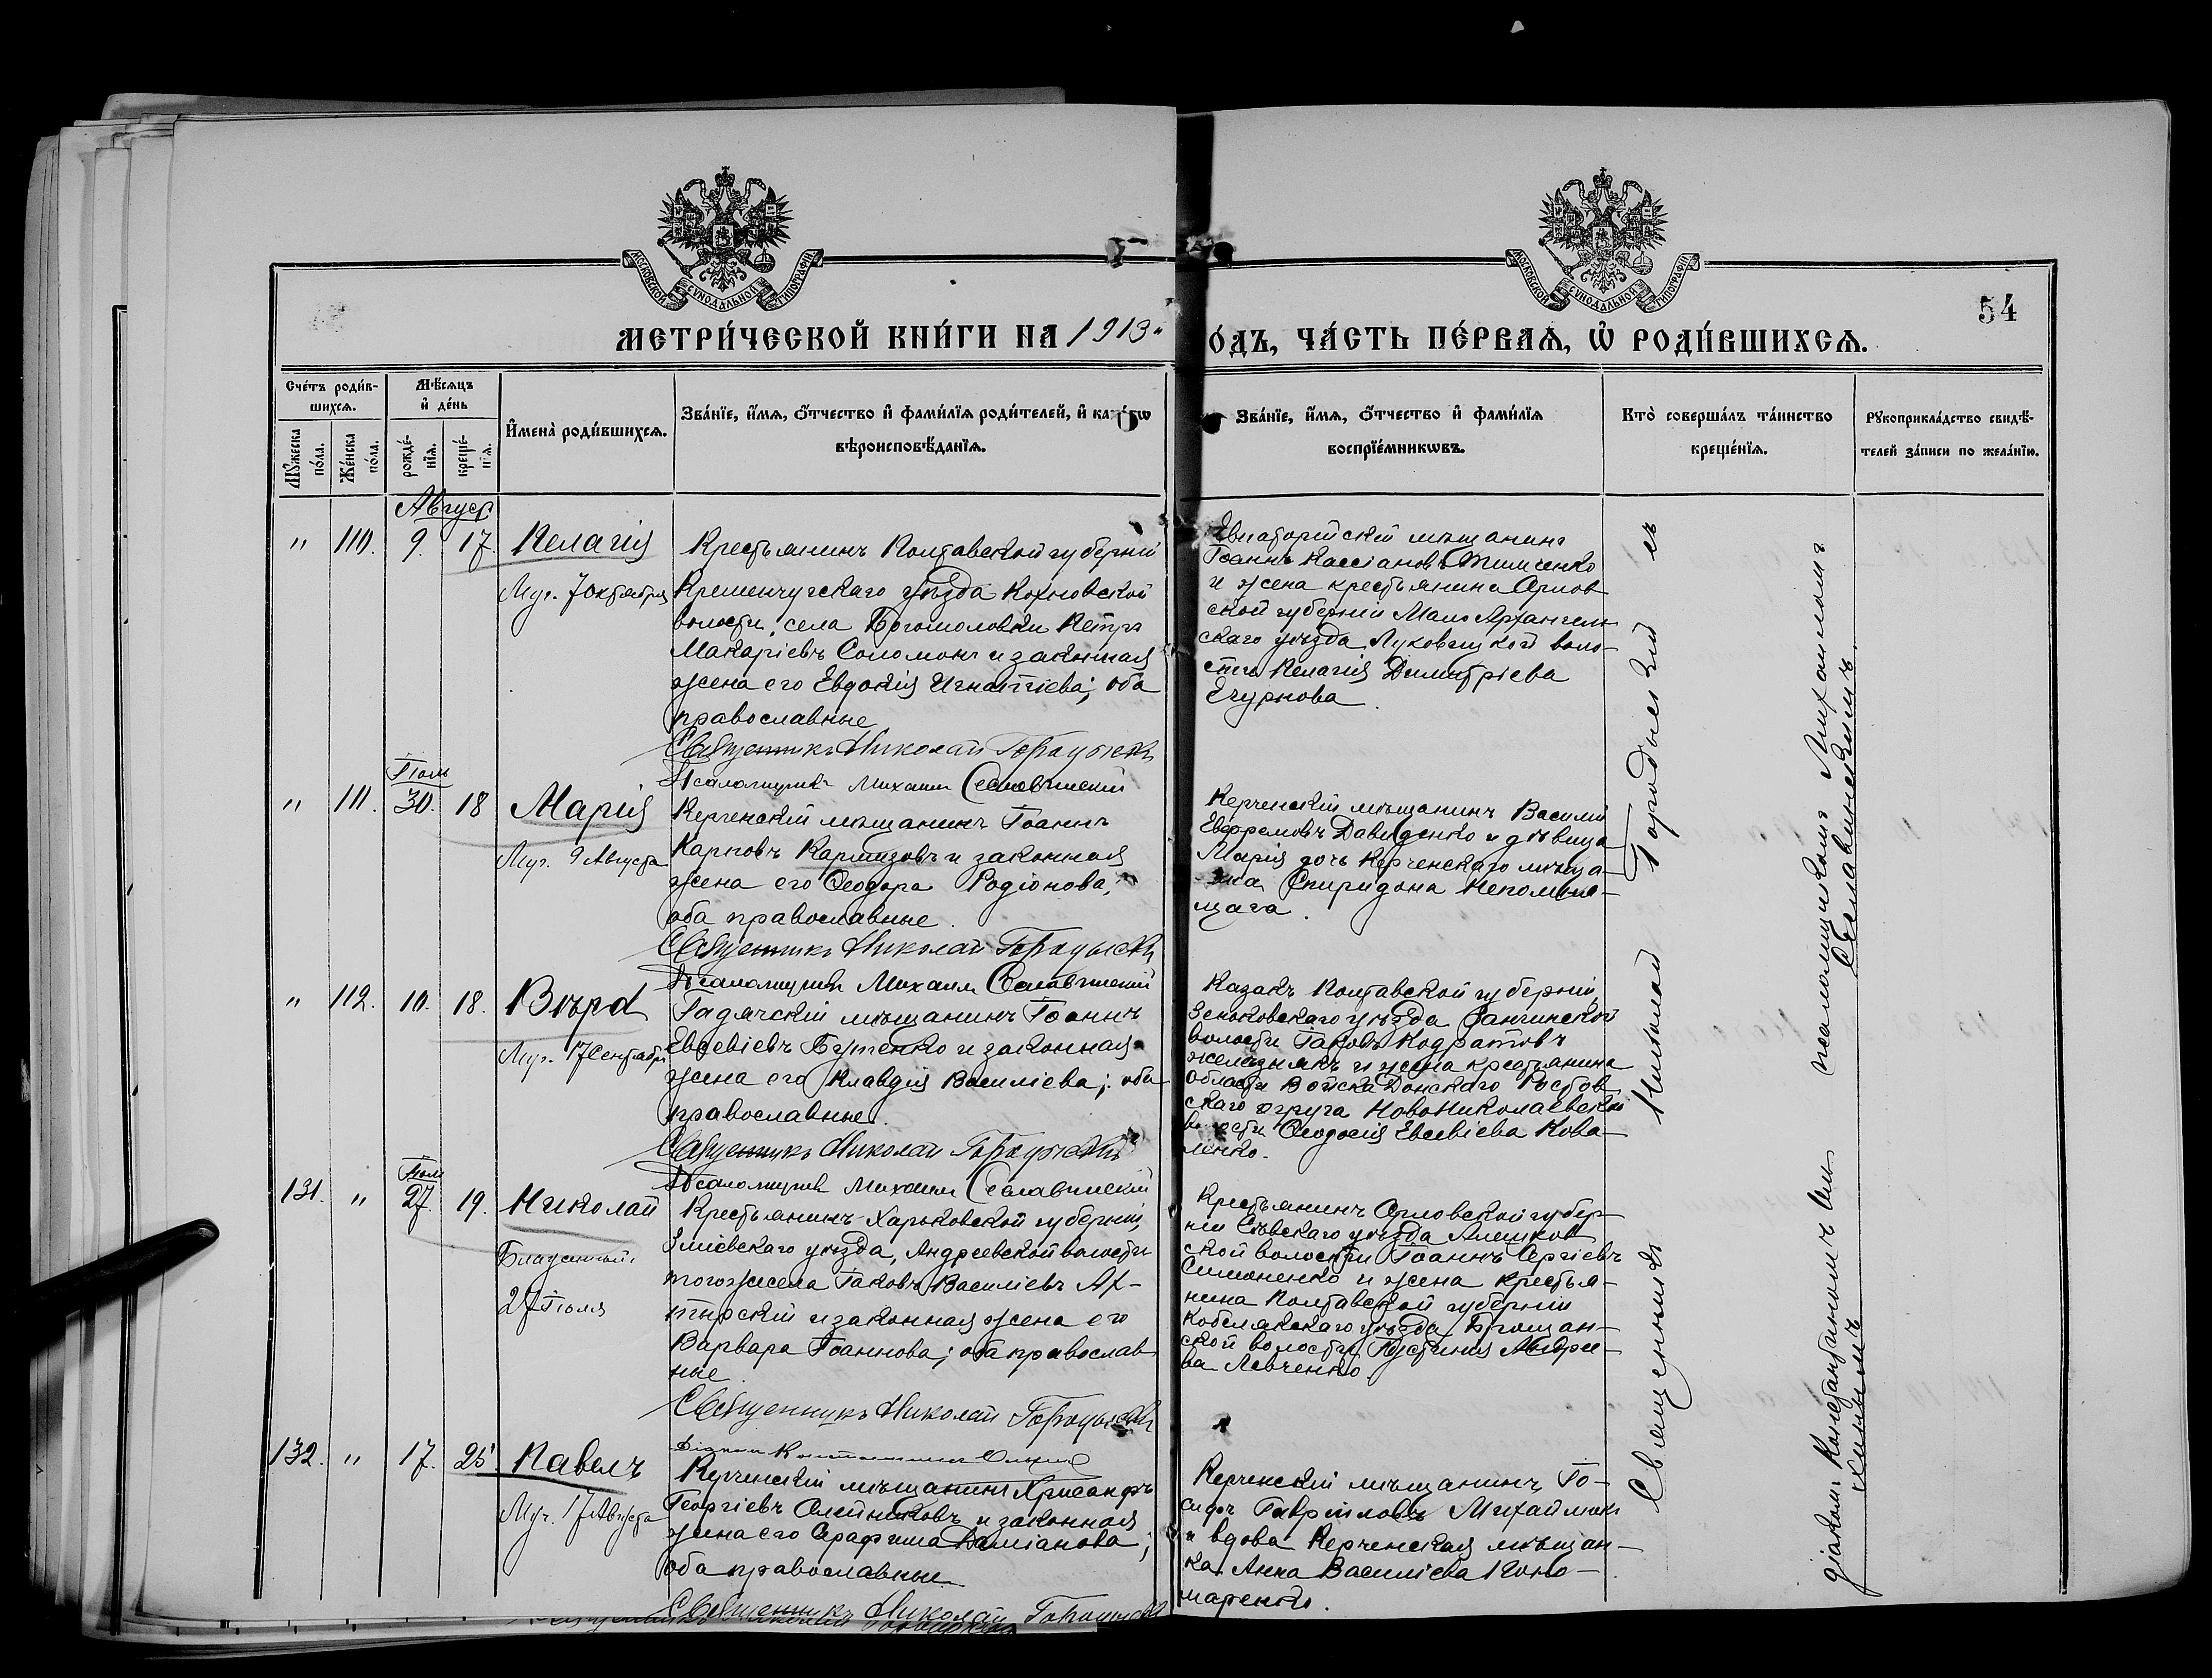 МОСКОВСКОЙ СѴНОДАЛЬНОЙ ТИПОГРАФІИ
МОСКОВСКОЙ СѴНОДАЛЬНОЙ ТИПОГРАФІИ
54
МЕТРИ́ЧЕСКОЙ КНИ́ГИ НА 1913
О́ДЪ, ЧА́СТЬ ПЕ́РВАѦ, Ѡ҆ РОДИ́ВШИХСѦ.
Сче́тъ роди́в-
шихсѧ.
Мꙋ́жеска по́ла.
Же́нска по́ла.
Мѣ́сѧцъ
и҆ де́нь
рожде́-
нїѧ.
креще́-
нїѧ.
И҆мена̀ роди́вшихсѧ.
Зва́нїе, и҆́мѧ, ѻ҆́тчество и҆ фами́лїѧ роди́телей, и҆
вѣроисповѣ́данїѧ.
Зва́нїе, и҆́мѧ, ѻ҆́тчество и҆ фами́лїѧ
воспрїе́мникѡвъ.
Кто̀ соверша́лъ та́инство
креще́нїѧ.
Рꙋкоприкла́дство свидѣ́-
телей за́писи по жела́нїю.
Август
" 110. 9. 17. Пелагія
Муч. 7 Октября
Крестьянинъ Полтавской губерніи
Кременчугскаго уѣзда Кохновской
волости, села Богомоловки Петръ
Макаріевъ Соломонъ и законная
жена его Евдокія Игнатіева; оба
православные
Священникъ Николай Городыскій
Псаломщикъ Михаилъ Селавинскій
Евпаторійскій мѣщанинъ
Іоаннъ Кассіановъ Тимченко
и жена крестьянина Орлов
ской губерніи Мало Архангель
скаго уѣзда Луковецкой воло-
сти Пелагія Димитріева
Егурнова.
" 111. Іюль 30. 18 Марія
Муч. 9 Августа
Керченскій мѣщанинъ Іоаннъ
Карповъ Кармазовъ и законная
жена его Ѳеодора Родіонова;
оба православные.
Священникъ Николай Городыскій
Псаломщикъ Михаилъ Селавинскій
Керченскій мѣщанинъ Василій
Евфремовъ Давиденко и дѣвица
Марія дочь Керченскаго мѣща-
нина Спиридона Непомня-
щаго.
" 112. 10. 18. Вѣра
Муч. 17 Сентября
Гадячскій мѣщанинъ Іоаннъ
Евсевіевъ Бутенко и законная
жена его Клавдія Василіева; оба
православные.
Священникъ Николай Городыскій
Псаломщикъ Михаилъ Селавинскій
Казакъ Полтавской губерніи,
Зеньковскаго уѣзда
волости Іаковъ Кодратовъ
Желѣзнякъ и жена крестьянина
Области Войска Донского Ростов
скаго округа НовоНиколаевской
волости Ѳеодосія Евсевіева Кова-
ленко.
131. " Іюль 27. 19. Николай
Блаженный.
27 Іюля
Крестьянинъ Харьковской губерніи,
Зміевскаго уѣзда, Андреевской волости
того же села Іаковъ Василіевъ Ах-
тырскій и законная жена его
Варвара Іоаннова; оба православ
ные.
Священникъ Николай Городыскій
Діаконъ Константинъ
Крестьянинъ Орловской губер-
ніи Сѣвскаго уѣзда Алешков
ской волости Іоаннъ Сергіевъ
Симоненко и жена крестья-
нина Полтавской губерніи
Кобелякскаго уѣзда Брощан-
ской волости Іустинія Андрее-
ва Левченко
132. " 17. 25 Павелъ
Муч. 17 Августа
Керченскій мѣщанинъ Хрисанфъ
Георгіевъ Олейниковъ и законная
жена его Серафима Даміанова;
оба православные
Священникъ Николай Городыскій
Керченскій мѣщанинъ Іо-
сифъ Гавриловъ Михайлюкъ
и вдова Керченская мѣщан-
ка Анна Василіева Коно-
маренко.
Священникъ Николай Городыскій съ
діакономъ Константиномъ псаломщикомъ Михаиломъ
Селавинскимъ